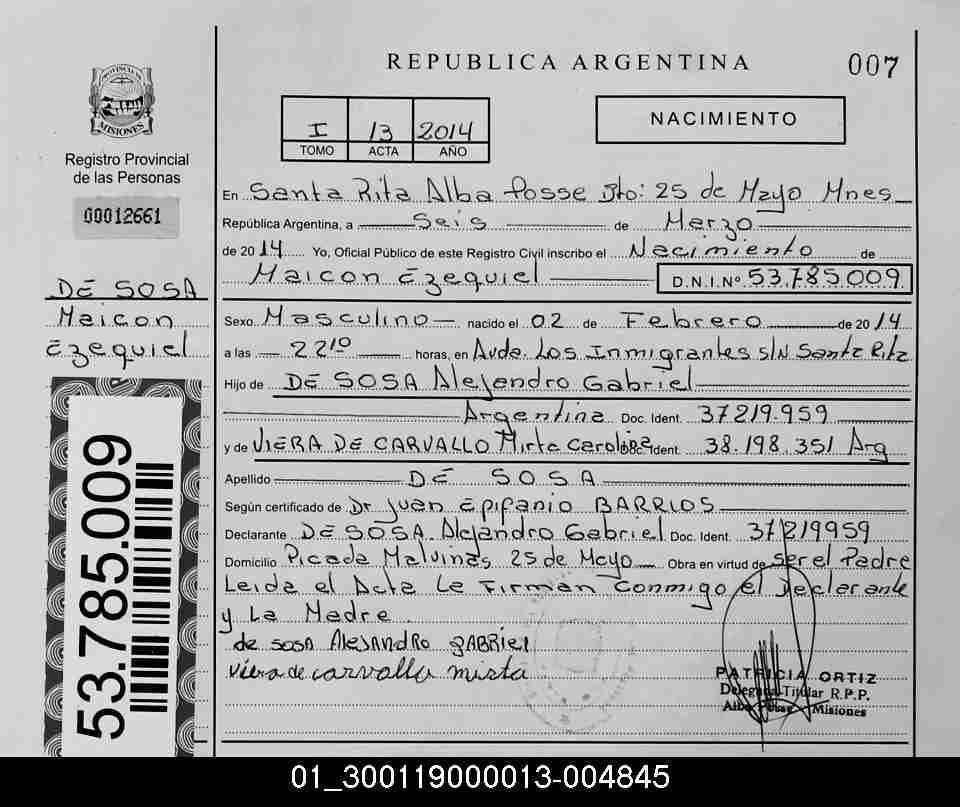 REPUBLICA ARGENTINA
007
PROVINCIA DE MISIONES
Registro Provincial
de las Personas
00012661
DE SOSA
Maicon
Ezequiel
53.785.009
I 13 2014
TOMO ACTA AÑO
NACIMIENTO
En Santa Rita Alba Posse Dto: 25 de Mayo Mnes
República Argentina, a Seis de Marzo
de 2014 Yo, Oficial Público de este Registro Civil inscribo el Nacimiento de
Maicon Ezequiel D.N.I.Nº 53.785.009
Sexo Masculino nacido el 02 de Febrero de 2014
a las 22¹⁰ horas, en Avda. Los Inmigrantes S/N Santa Rita
Hijo de DE SOSA Alejandro Gabriel
Argentina Doc. Ident. 37219.959
y de VIERA DE CARVALLO Mirta Carolina Doc. Ident. 38.198.351 Arg
Apellido DE SOSA
Según certificado de Dr Juan Epifanio BARRIOS
Declarante DE SOSA Alejandro Gabriel Doc. Ident. 37219959
Domicilio Picada Malvinas 25 de Mayo Obra en virtud de ser el Padre
Leida el Acta Le Firman Conmigo el Declarante
y La Madre
de sosa Alejandro gabriel
viera de carvallo mirta
PATRICIA ORTIZ
Delegada Titular R.P.P.
Alba Posse Misiones
01_300119000013-004845